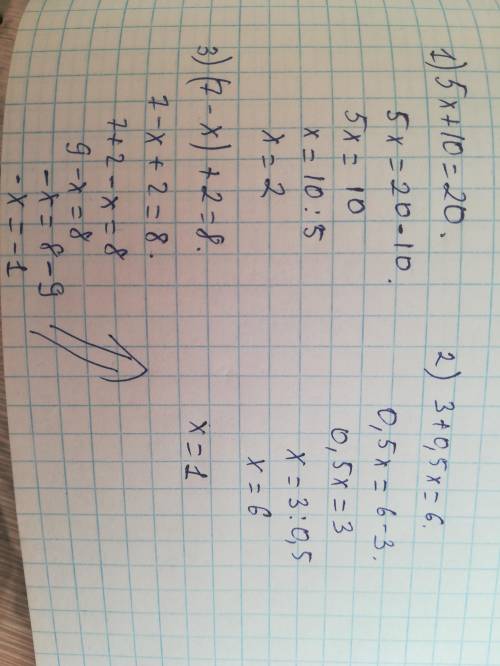 1) 5x+10=20.
5x=20-10.
5x=10
x=10:5
x=2
2) 3+0,5x=6.
0,5x=6-3.
0,5x=3
x=3:0,5
x=6
3) (7-x)+2=8.
7-x+2=8.
7+2-x=8
9-x=8
-x=8-9
-x=-1
x=1